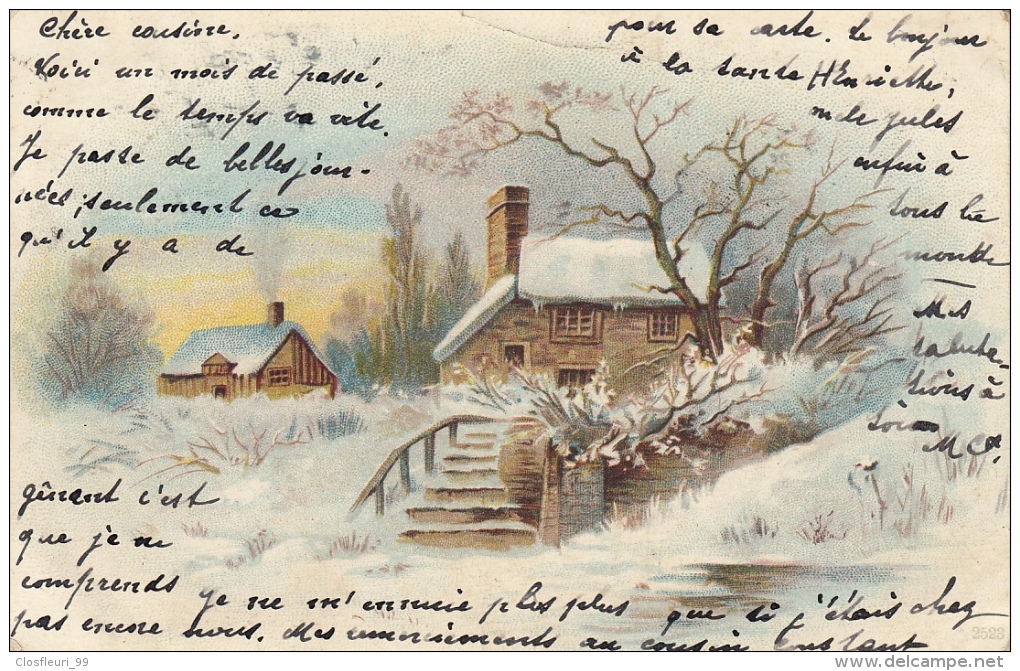 Chère cousine,
Voici un mois de passé,
comme le temps va vite.
Je passe de belles jour-
nées; seulement ce
qu'il y a de
gênant c'est
que je ne
comprends
pas encore
je ne m'ennuie plus plus que si j'étais chez
nous. Mes remerciements au cousin Constant
pour sa carte. Le bonjour
à la tante Henriette,
Jules
enfin à
tous le
monde
—
Mes
saluta-
tions à
M C
2523
Closfleuri_99
delcampe.net